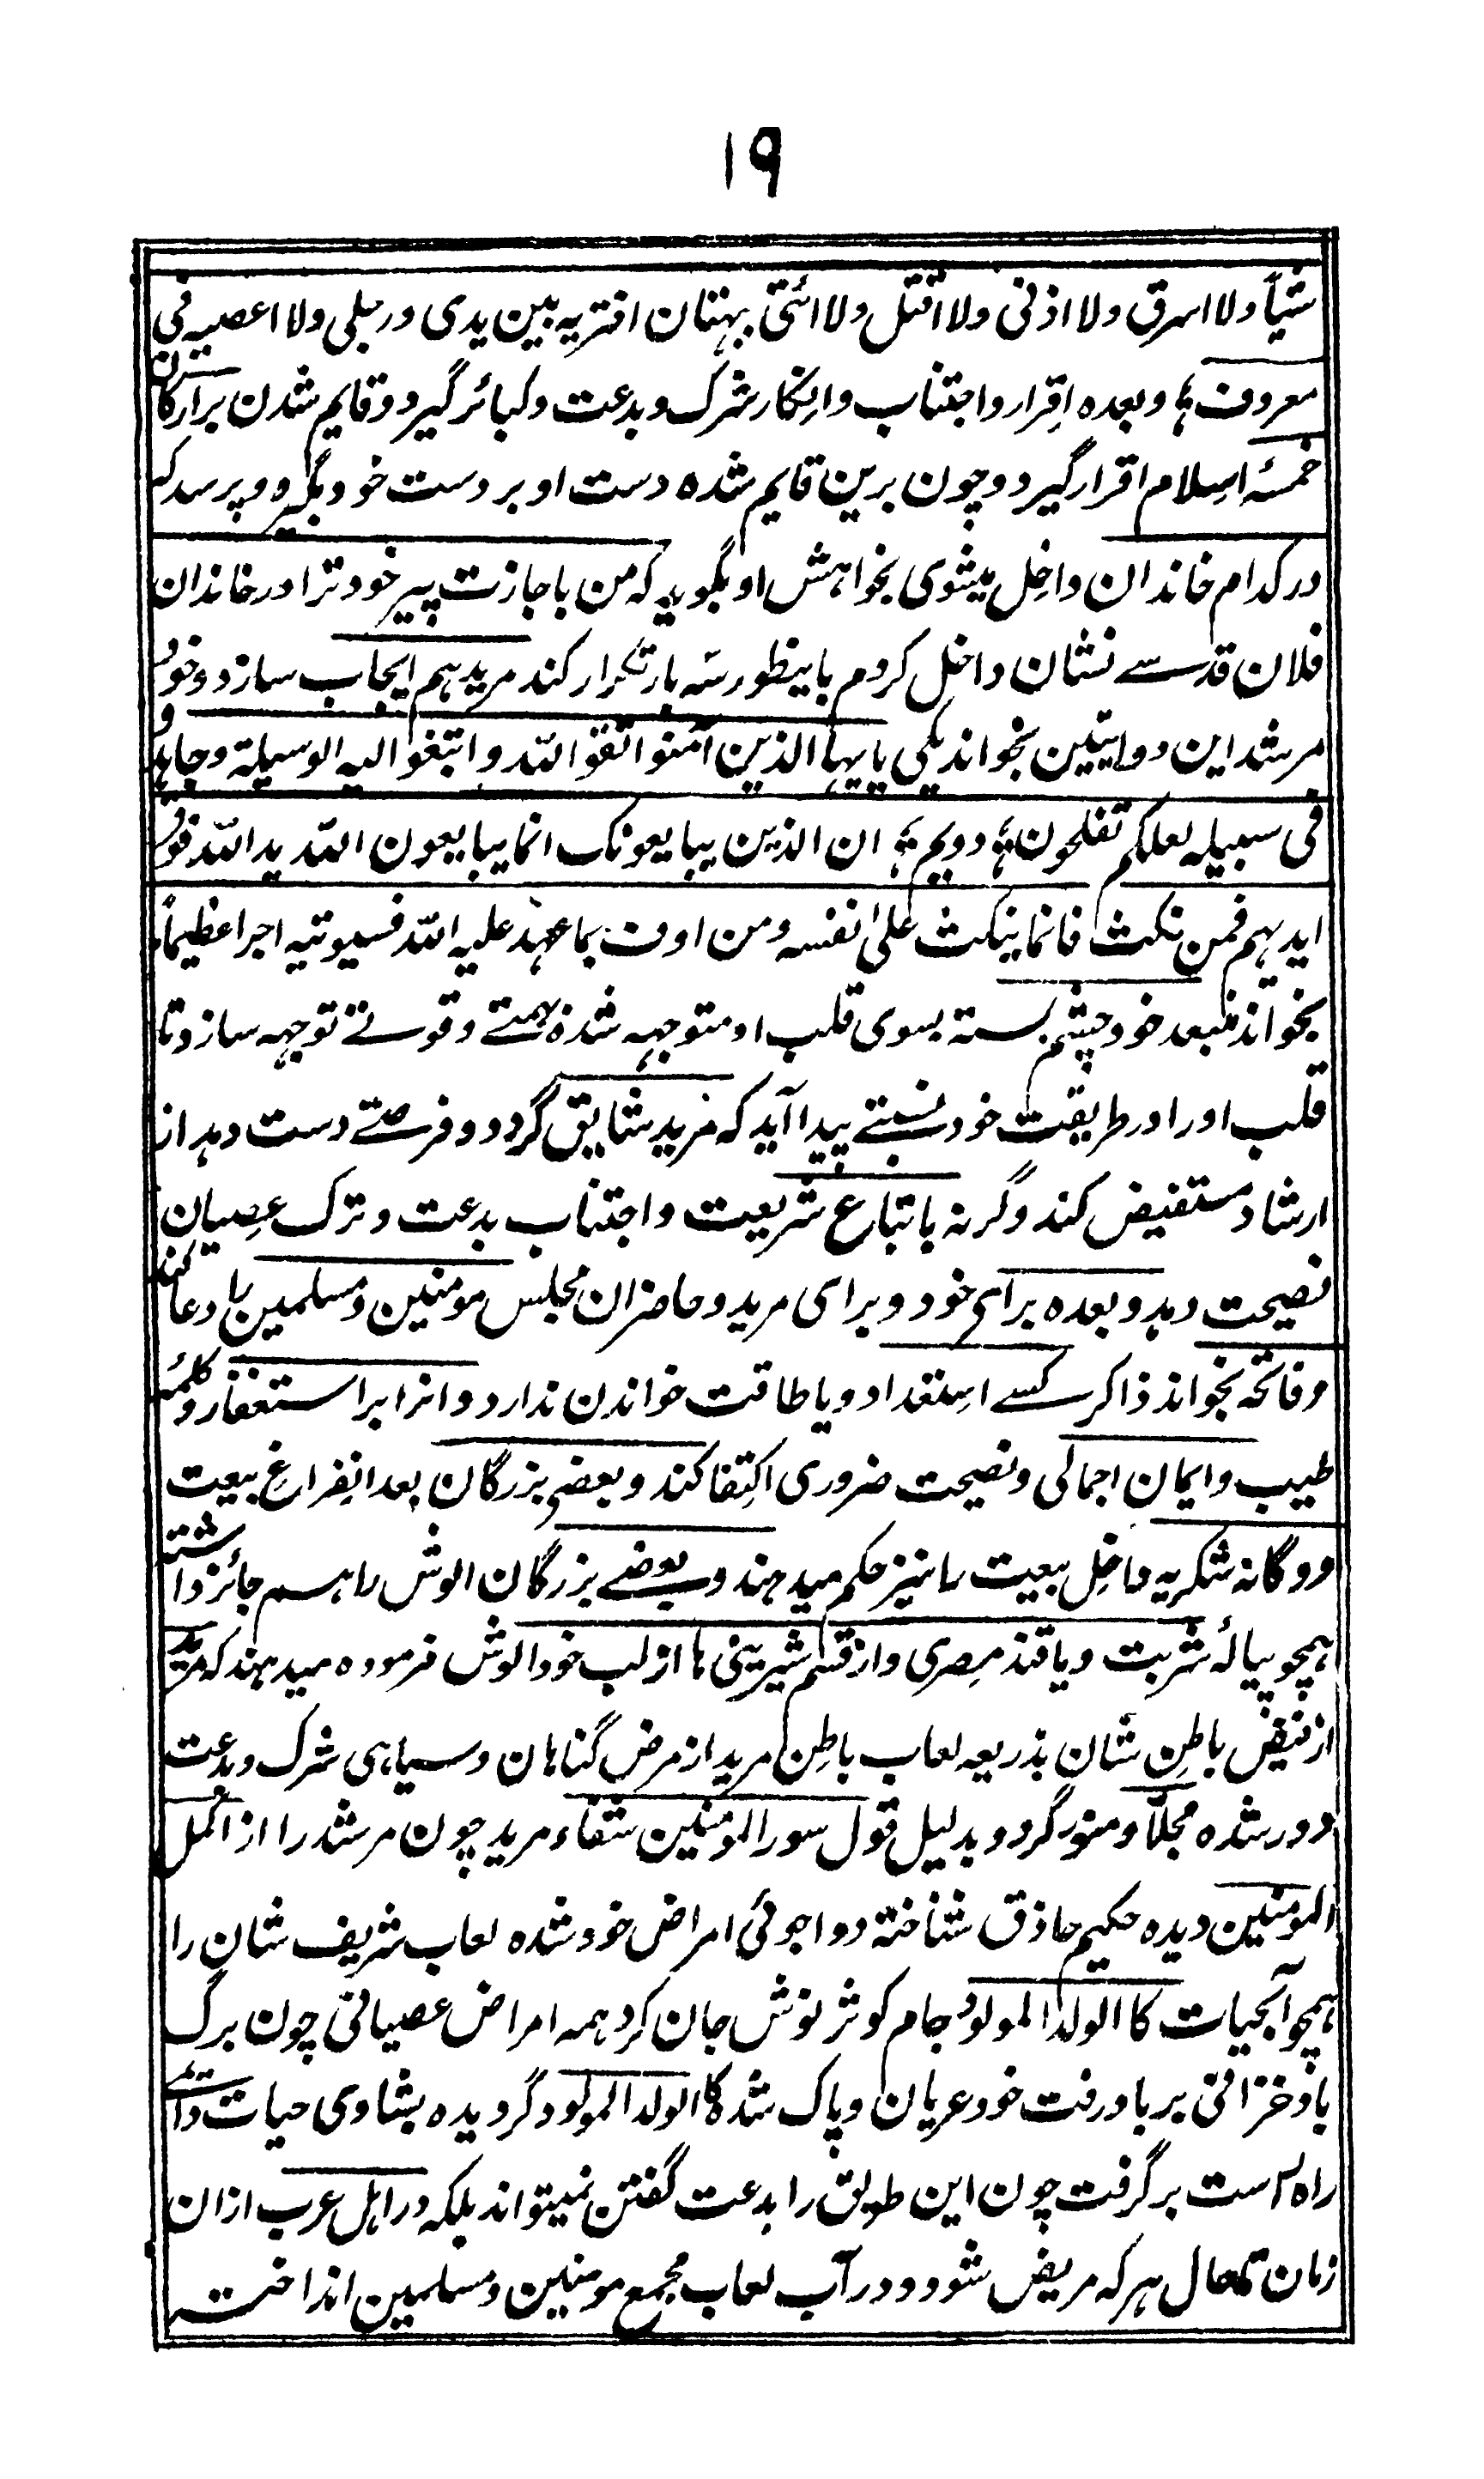 ۱۹
شیأ ولا اسرق ولا ازنی ولا اقتل ولا اٰتی بہتان افتریہ بین یدی ورجلی ولا اعصیہ فی
معروف؛ و بعدہ اِقرار و اجتناب و اِنکار شرک و بدعت و کبائر گیرد و قایم شدن بر ارکان
خمسۂ اسلام اقرار گیرد و چون برین قایم شدہ دست او بر دست خود بگیرد و پرسد کہ
در کدام خاندان داخِل میشوی بخواہش او بگوید کہ من باجازت پیر خود ترا در خاندان
فلان قدسے نشان داخل کردم باینطور سہ بار تکرار کند مرید ہم ایجاب سازد و خود
مرشد این دو ایتین بخواند یکی یایہا الذین آمنوا اتقو اللہ وابتغوا الیہ الوسیلۃ وجاہدو
فی سبیلہ لعلکم تفلحون؛ دویم؛ ان الذین یبایعونک انما یبایعون اللہ ید اللہ فوق
ایدیہم فمن نکث فانما ینکث علیٰ نفسہ ومن اوفٰ بما عہد علیہ اللہ فسیوتیہ اجرا عظیماً
بخواند منبعد خود چشم بستہ بسوی قلب او متوجہہ شدہ ہمتے و قوتے توجہہ سازد تا
قلب او را در طریقت خود نسبتے پیدا آید کہ مرید شایق گردد و فرصتے دست دہد از
ارشاد مستفیض کند وگرنہ باتباع شریعت و اجتناب بدعت و ترک عِصیان
نصیحت دہد و بعدہ براے خود و برای مرید و حاضران مجلس مومنین و مسلمین را دعا کند
و فاتحہ بخواند ذاکر کسے استعداد و یا طاقت خواندن ندارد و انرا برا استغفار و کلمۂ
طیب و ایمان اجمالی و نصیحت ضروری اکتِفا کند و بعضے بزرگان بعد اِنفِراغِ بیعت
دوگانہ شکریہ داخِل بیعت را نیز حکم میدہند و بعضے بزرگان الوش را ہم جائز داشتہ
ہمچو پیالۂ شربت و یا قند مِصری و از قسم شیرینی ہا از لب خود الوش فرمودہ میدہند کہ مرید
از فیض باطِن شان بذریعہ لعاب باطِن مرید از مرض گناہان و سیاہی شرک و بدعت
دور شدہ مجلّا و منوّر گردد بدلیل قول سور المومنین شفاء مرید چون مرشد را از اکمل
المومنین دیدہ حکیم حاذق شناختہ دواجوئی امراض خود شدہ لعاب شریف شان را
ہمچو آبحیات کا الولد المولود جام کوثر نوش جان کرد ہمہ امراض عصیانی چون برگ
باد خزانی بر باد رفت خود عریان و پاک شدہ کا الولد المولود گردیدہ بشاوی حیات دائمے
راہ راست برگرفت چون این طریق را بدعت گفتن نمیتواند بلکہ در اہل عرب ازان
زمان تا حال ہر کہ مریض شود و در آب لعاب مجمع مومنین و مسلمین انداختہ